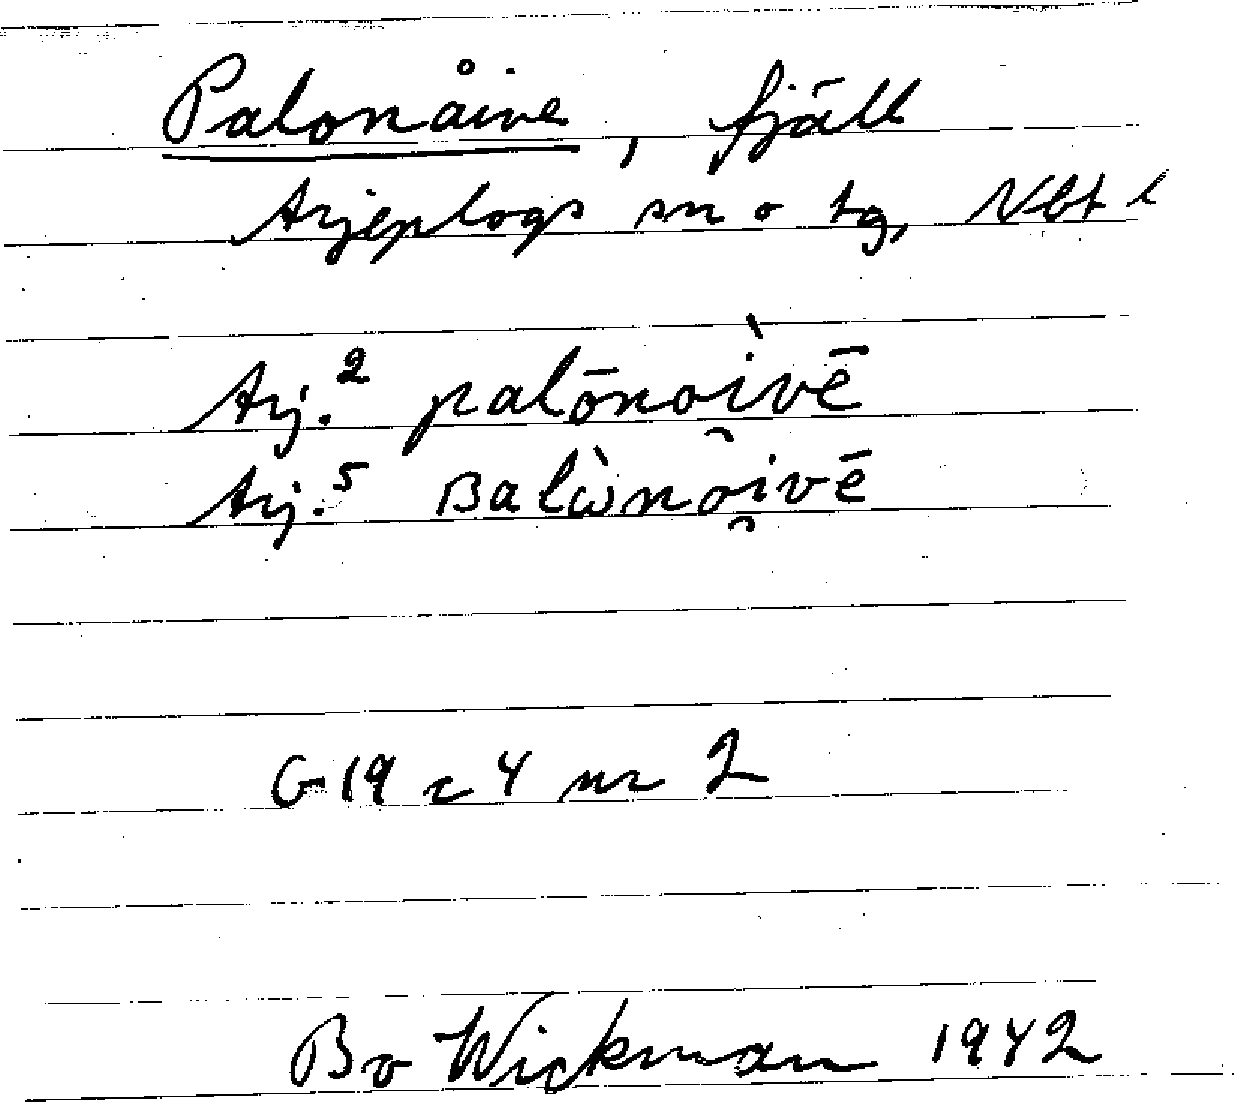 Palonåive, fjäll
Arjeplogs sn o tg, Nbt l
Arj.² palōnoi̯vē
Arj.⁵ ʙalὼno̯ivē
G 19 c 4 nr 2
Bo Wickman 1942